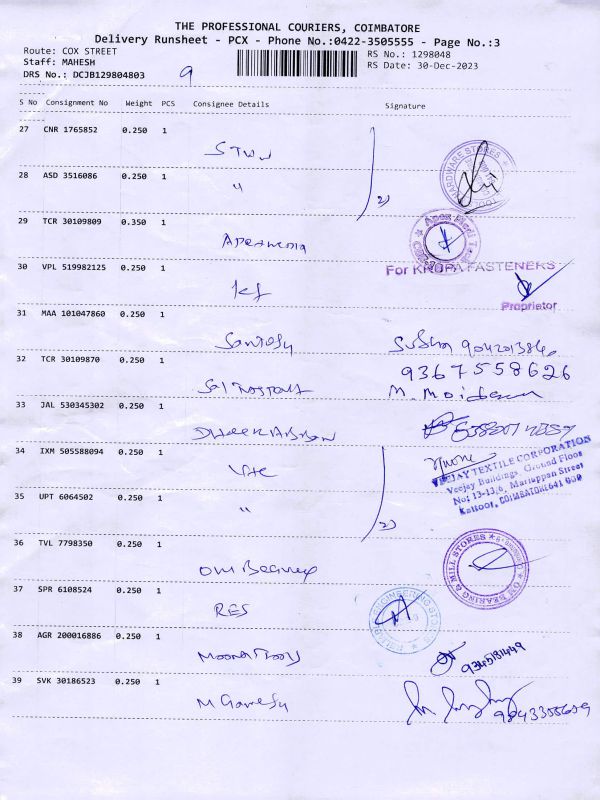 THE PROFESSIONAL COURIERS, COIMBATORE
Delivery Runsheet - PCX - Phone No.:0422-3505555 - Page No.:3
Route: COX STREET
RS No.: 1298048
Staff: MAHESH
RS Date: 30-Dec-2023
DRS No.: DCJB129804803
9
S No Consignment No Weight PCS Consignee Details Signature
27 CNR 1765852 0.250 1
HARDWARE STORES
28 ASD 3516086 0.250 1
"
2)
29 TCR 30109809 0.350 1
30 VPL 519982125 0.250 1
For KRUPA FASTENERS
Proprietor
31 MAA 101047860 0.250 1
Santosh
32 TCR 30109870 0.250 1
9367558626
33 JAL 530345302 0.250 1
34 IXM 505588094 0.250 1
Vtc
VEEJAY TEXTILE CORPORATION
Veejay Buildings, Ground Floor
No: 13-13,6, Mariappan Street
Kattoor, COIMBATORE-641 009
35 UPT 6064502 0.250 1
"
2)
36 TVL 7798350 0.250 1
Om Bearing
OM BEARING & MILL STORES
37 SPR 6108524 0.250 1
RES
ENGINEERING STORES
38 AGR 200016886 0.250 1
9345181449
39 SVK 30186523 0.250 1
M Ganesh